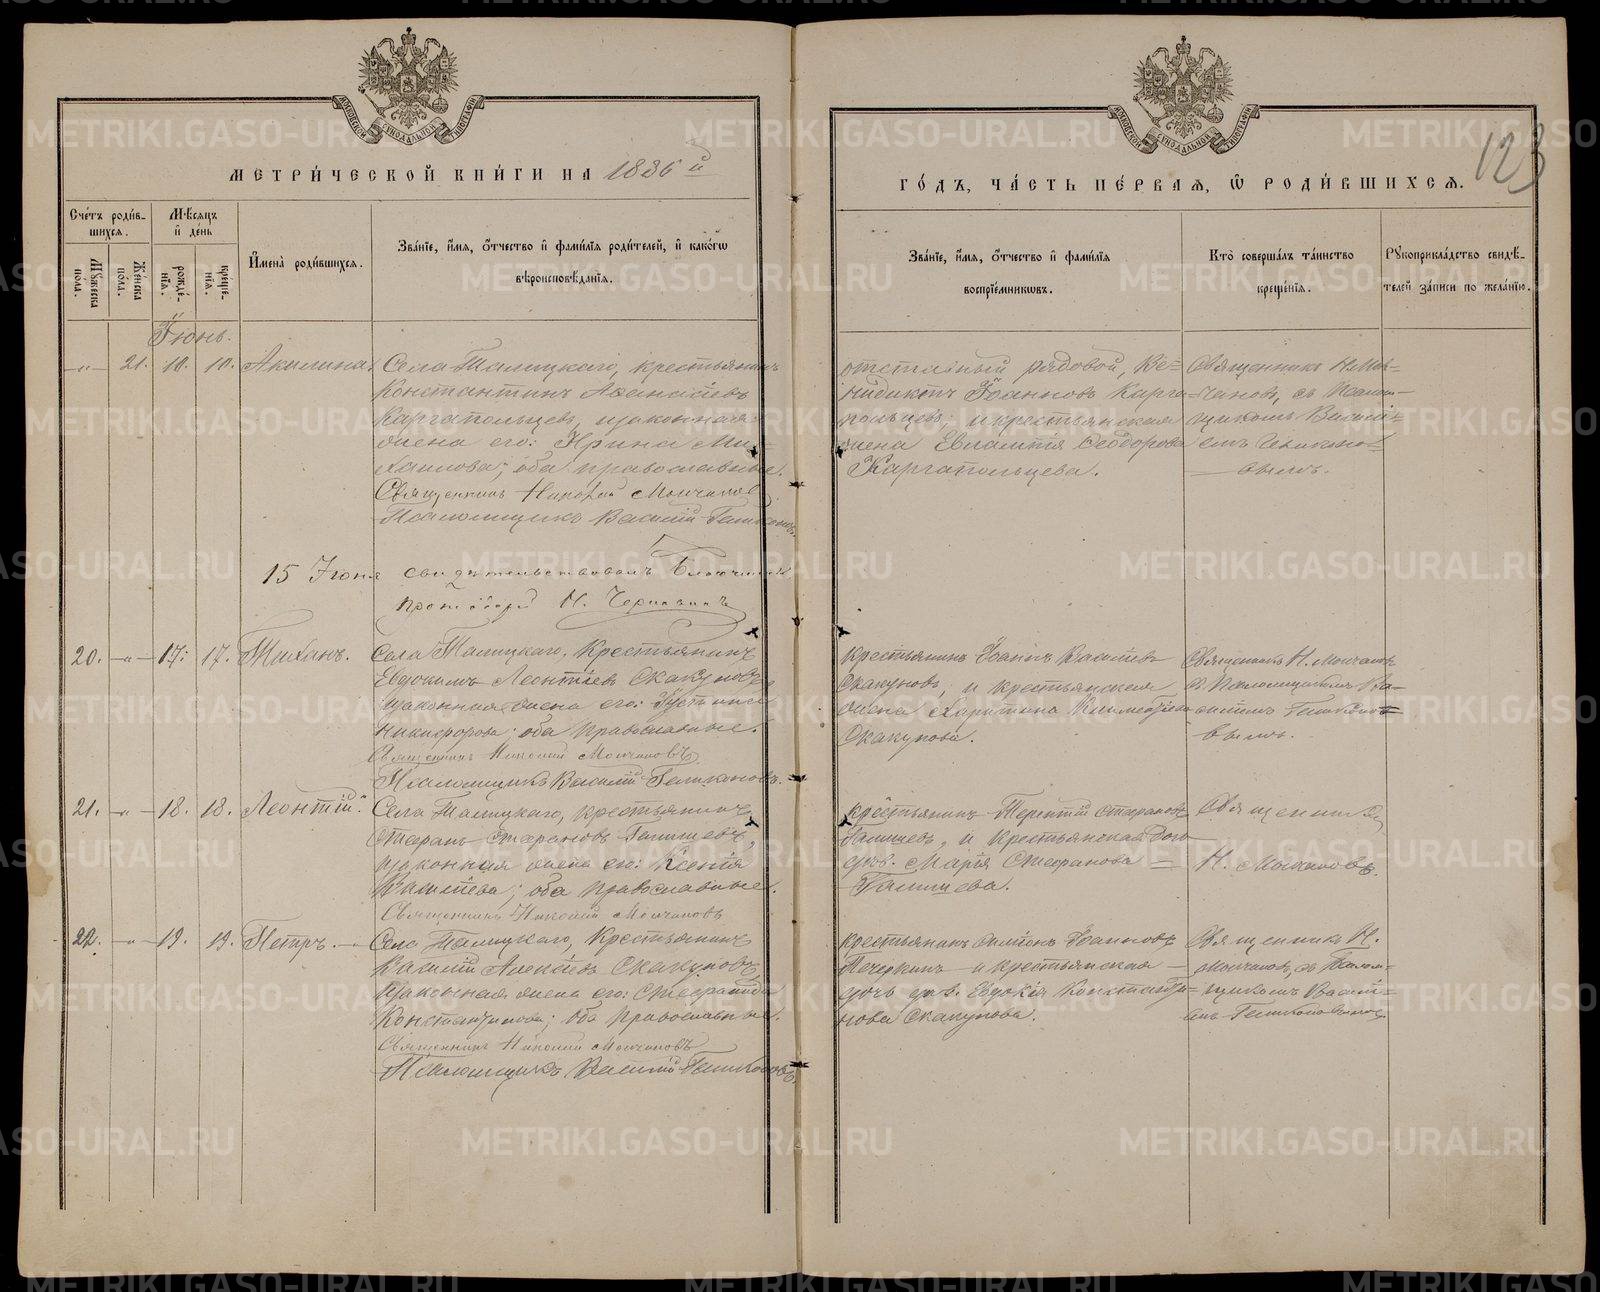 МЕТРИ́ЧЕСКОЙ КНИ́ГИ НА 1886 й
Сче́тъ роди́в-
шихсѧ.
Мѣ́сѧцъ
и҆ де́нь
Мꙋ́жеска
по́ла.
Же́нска
по́ла.
рожде́-
нїѧ.
креще́-
нїѧ.
И҆мена̀ роди́вшихсѧ.
Зва́нїе, и҆́мѧ, ѻ҆́тчество и҆ фами́лїѧ роди́телей, и҆ како́гѡ
вѣроисповѣ́данїѧ.
Іюнь.
-"- 21. 10. 10. Акилина.
Села Талицкаго, крестьянинъ
Константинъ Аѳанасіевъ
Каргапольцевъ, и законная
жена его: Ирина Ми-
хаилова; оба православные.
Священникъ Николай Молчановъ
Псаломщикъ Василій
15 Іюня свидѣтельствовалъ Благочинный
Протоіерей Н.
20. -"- 17. 17. Тихонъ.
Села Талицкаго, крестьянинъ
Евдокимъ Леонтіевъ Скакуновъ,
и законная жена его: Іустинія
Никифорова; оба православные.
Священникъ Николай Молчановъ
Псаломщикъ Василій
21. -"- 18. 18. Леонтій.
Села Талицкаго, крестьянинъ
Стефанъ Стефановъ Галишевъ,
и законная жена его: Ксенія
Василіева; оба православные.
Священникъ Николай Молчановъ
22. -"- 19. 19. Петръ.
Села Талицкаго, крестьянинъ
Василій Алексіевъ Скакуновъ,
и законная жена его: Стефанида
Константинова; оба православные.
Священникъ Николай Молчановъ
Псаломщикъ Василій
ГО́ДЪ, ЧА́СТЬ ПЕ́РВАѦ, Ѡ҆ РОДИ́ВШИХСѦ.
123
Зва́нїе, и҆́мѧ, ѻ҆́тчество и҆ фами́лїѧ
воспрїе́мникѡвъ.
Кто̀ соверша́лъ та́инство
креще́нїѧ.
Рꙋкоприкла́дство свидѣ́-
телей за́писи по жела́нїю.
отставный рядовой, Ве-
ндиктъ Іоанновъ Карга-
польцевъ, и крестьянская
жена Евлампія Ѳеодорова
Каргапольцева.
Священникъ Н. Мол-
чановъ, съ Псалом-
щикомъ Василі-
емъ
крестьянинъ Іоаннъ Василіевъ
Скакуновъ, и крестьянская
жена Харитина
Скакунова.
Священникъ Н. Молчановъ
съ Псаломщикомъ Ва-
силіемъ
крестьянинъ Терентій Стефановъ
Галишевъ, и крестьянская дочь
дѣв. Марія Стефанова
Галишева.
Священникъ
Н. Молчановъ.
крестьянинъ Іоанновъ
Печеркинъ и крестьянская
дочь дѣв. Евдокія Константи-
нова Скакунова.
Священникъ Н.
Молчановъ, съ Псалом-
щикомъ Василі-
емъ
METRIKI.GASO-URAL.RU